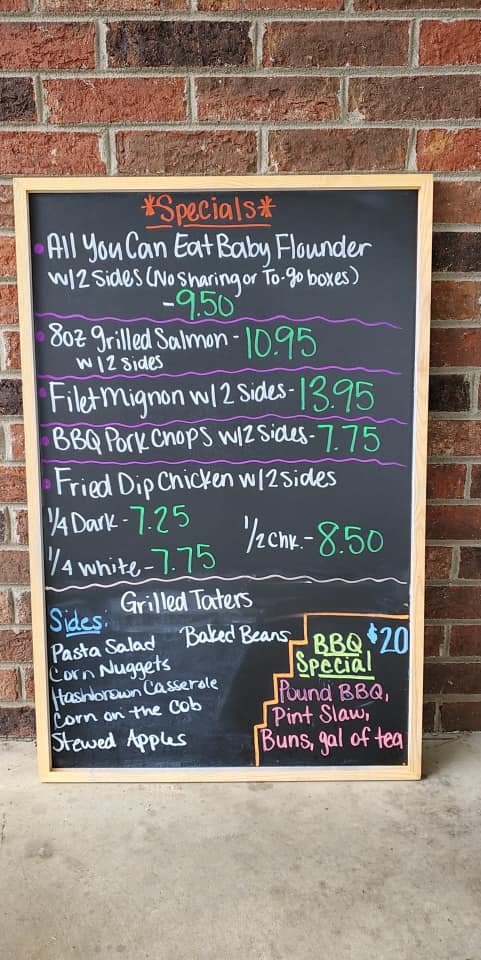 *Specials*
All You Can Eat Baby Flounder
w/2 Sides (No sharing or To-go boxes)
-9.50
8oz grilled Salmon - 10.95
w/2 sides
Filet Mignon w/2 Sides - 13.95
BBQ Pork Chops w/2 Sides - 7.75
Fried Dip Chicken w/2 sides
1/4 Dark - 7.25
1/2 chk. - 8.50
1/4 white - 7.75
Grilled Taters
Sides:
Pasta Salad
Baked Beans
Corn Nuggets
Hashbrown Casserole
Corn on the Cob
Stewed Apples
BBQ $20
Special
Pound BBQ,
Pint Slaw,
Buns, gal of tea